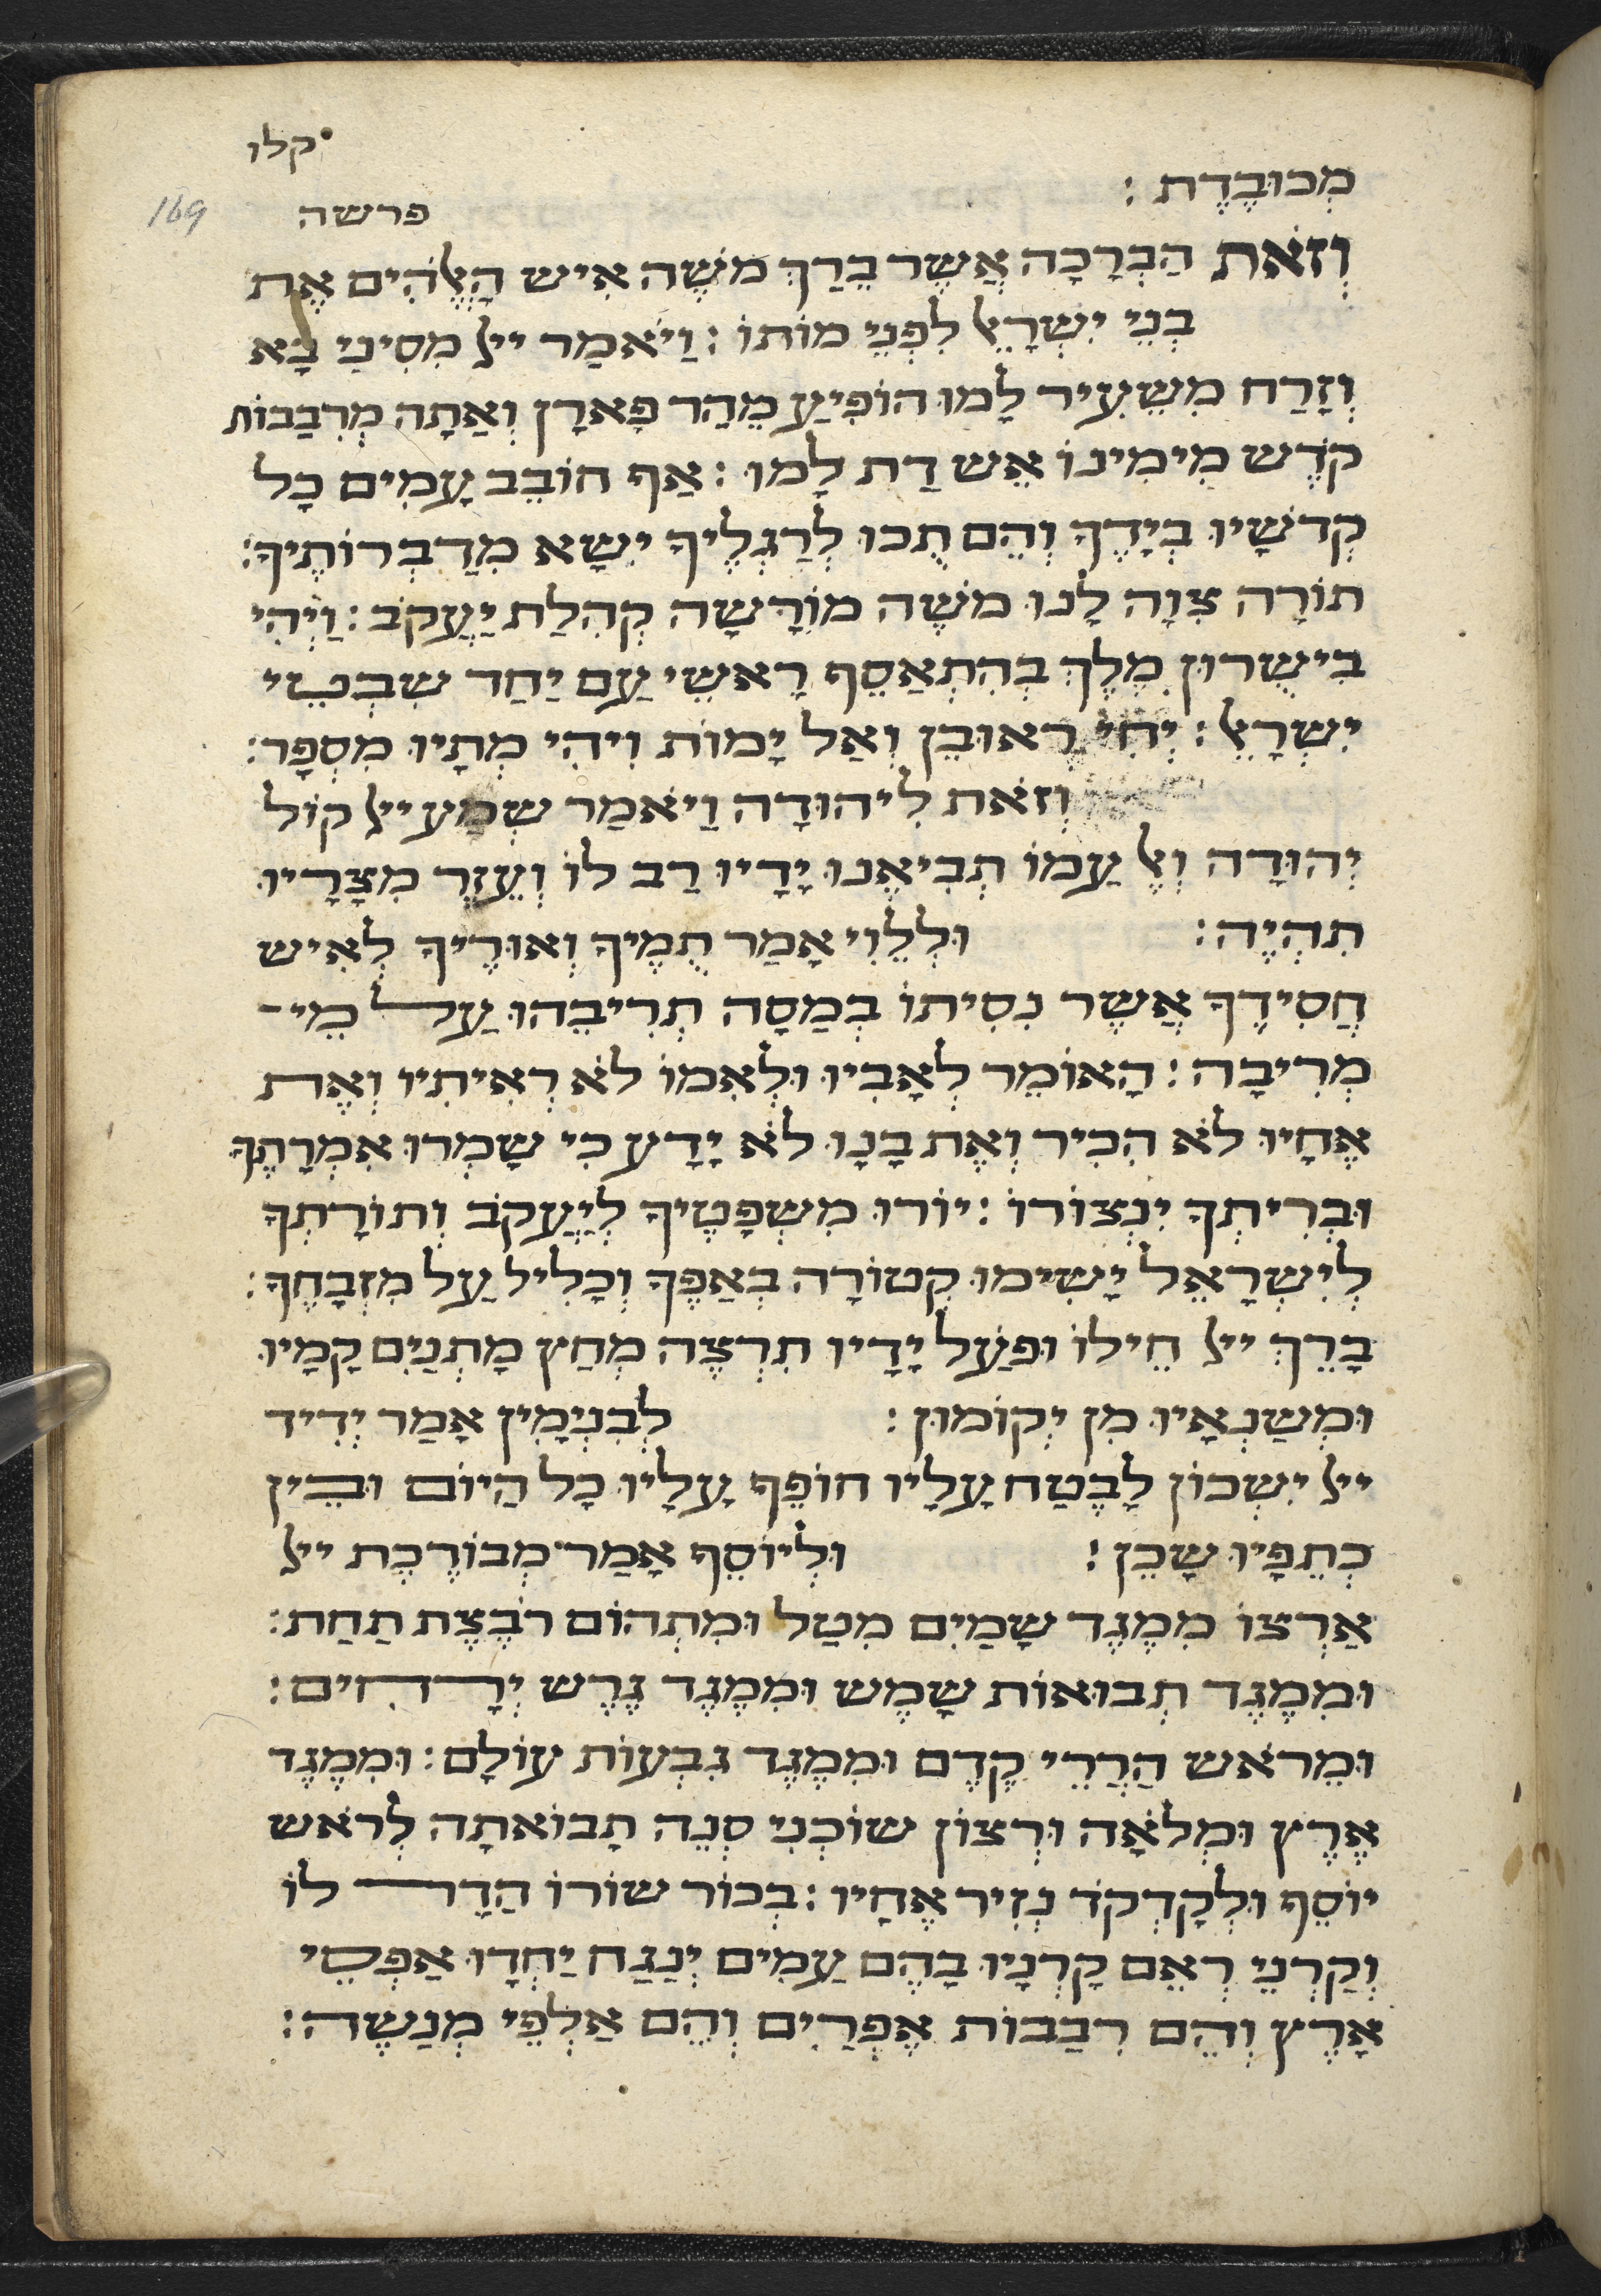 קלו
169
מְכוּבֶדֶת :
פרשה
וְזֹאת הַבְּרָכָה אֲשֶׁר בֵּרַךְ מֹשֶׁה אִישׁ הָאֱלֹהִים אֶת
בְּנֵי יִשְׂרָאֵל לִפְנֵי מוֹתוֹ : וַיֹּאמַר ייל מִסִינַי בָּא
וְזָרַח מִשֵּׂעִיר לָמוּ הוֹפִיעַ מֵהַר פָּארָן וְאָתָה מְרִבַבוֹת
קֹדֶשׁ מִימִינוֹ אֵשׁ דַּת לָמוּ : אַף חוֹבֵב עַמִים כָּל
קְדֹשָׁיו בְּיָדֶךָ וְהֵם תֻּכוּ לְרַגְלֶיךָ יִשָּׂא מִדַּבְּרוֹתֶיךָ :
תוֹרָה צִוָּה לָנוּ מֹשֶׁה מוֹרָשָׁה קְהִלַּת יַעֲקֹב : וַיְהִי
בִישֻׁרוּן מֶלֶךְ בְּהִתְאַסֵּף רָאשֵׁי עַם יַחַד שִׁבְטֵי
יִשְׂרָאֵל : יְחִי רְאוּבֵן וְאַל יָמוֹת וִיהִי מְתָיו מִסְפָּר :
וְזֹאת לִיהוּדָה וַיֹּאמַר שְׁמַע ייל קוֹל
יְהוּדָה וְאֶל עַמּוֹ תְּבִיאֶנּוּ יָדָיו רַב לוֹ וְעֵזֶר מִצָּרָיו
תִהְיֶה :          וּלְלֵוִי אָמַר תֻּמֶּיךָ וְאוּרֶיךָ לְאִישׁ
חֲסִידֶךָ אֲשֶׁר נִסִּיתוֹ בְּמַסָּה תְּרִיבֵהוּ עַל מֵי־
מְרִיבָה : הָאוֹמֵר לְאָבִיו וּלְאִמּוֹ לֹא רְאִיתִיו וְאֶת
אֶחָיו לֹא הִכִּיר וְאֶת בָּנָו לֹא יָדָע כִּי שָׁמְרוּ אִמְרָתֶךָ
וּבְרִיתְךָ יִנְצוֹרוּ : יוֹרוּ מִשְׁפָּטֶיךָ לְיַעֲקֹב וְתוֹרָתְךָ
לְיִשְׂרָאֵל יָשִׂימוּ קְטוֹרָה בְּאַפֶּךָ וְכָלִיל עַל מִזְבָּחֶךָ :
בָּרֵךְ ייל חֵילוֹ וּפֹעַל יָדָיו תִּרְצֶה מְחַץ מָתְנַיִם קָמָיו
וּמִשַׂנְאָיו מִן יְקוּמוּן :          לְבִנְיָמִין אָמַר יְדִיד
ייל יִשְׁכּוֹן לָבֶטַח עָלָיו חוֹפֵף עָלָיו כָּל הַיּוֹם וּבֵין
כְּתֵפָיו שָׁכֵן :          וּלְיוֹסֵף אָמַר מְבוֹרֶכֶת ייל
אַרְצוֹ מִמֶּגֶד שָׁמַיִם מִטַּל וּמִתְּהוֹם רֹבֶצֶת תָּחַת :
וּמִמֶּגֶד תְּבוּאוֹת שָׁמֶשׁ וּמִמֶּגֶד גֶּרֶשׁ יְרָחִים :
וּמֵרֹאשׁ הַרֲרֵי קֶדֶם וּמִמֶּגֶד גִּבְעוֹת עוֹלָם : וּמִמֶּגֶד
אֶרֶץ וּמְלֹאָהּ וּרְצוֹן שׁוֹכְנִי סְנֶה תָּבוֹאתָה לְרֹאשׁ
יוֹסֵף וּלְקָדְקֹד נְזִיר אֶחָיו : בְּכוֹר שׁוֹרוֹ הָדָר לוֹ
וְקַרְנֵי רְאֵם קַרְנָיו בָּהֶם עַמִּים יְנַגַּח יַחְדָּו אַפְסֵי
אָרֶץ וְהֵם רִבְבוֹת אֶפְרַיִם וְהֵם אַלְפֵי מְנַשֶּׁה :